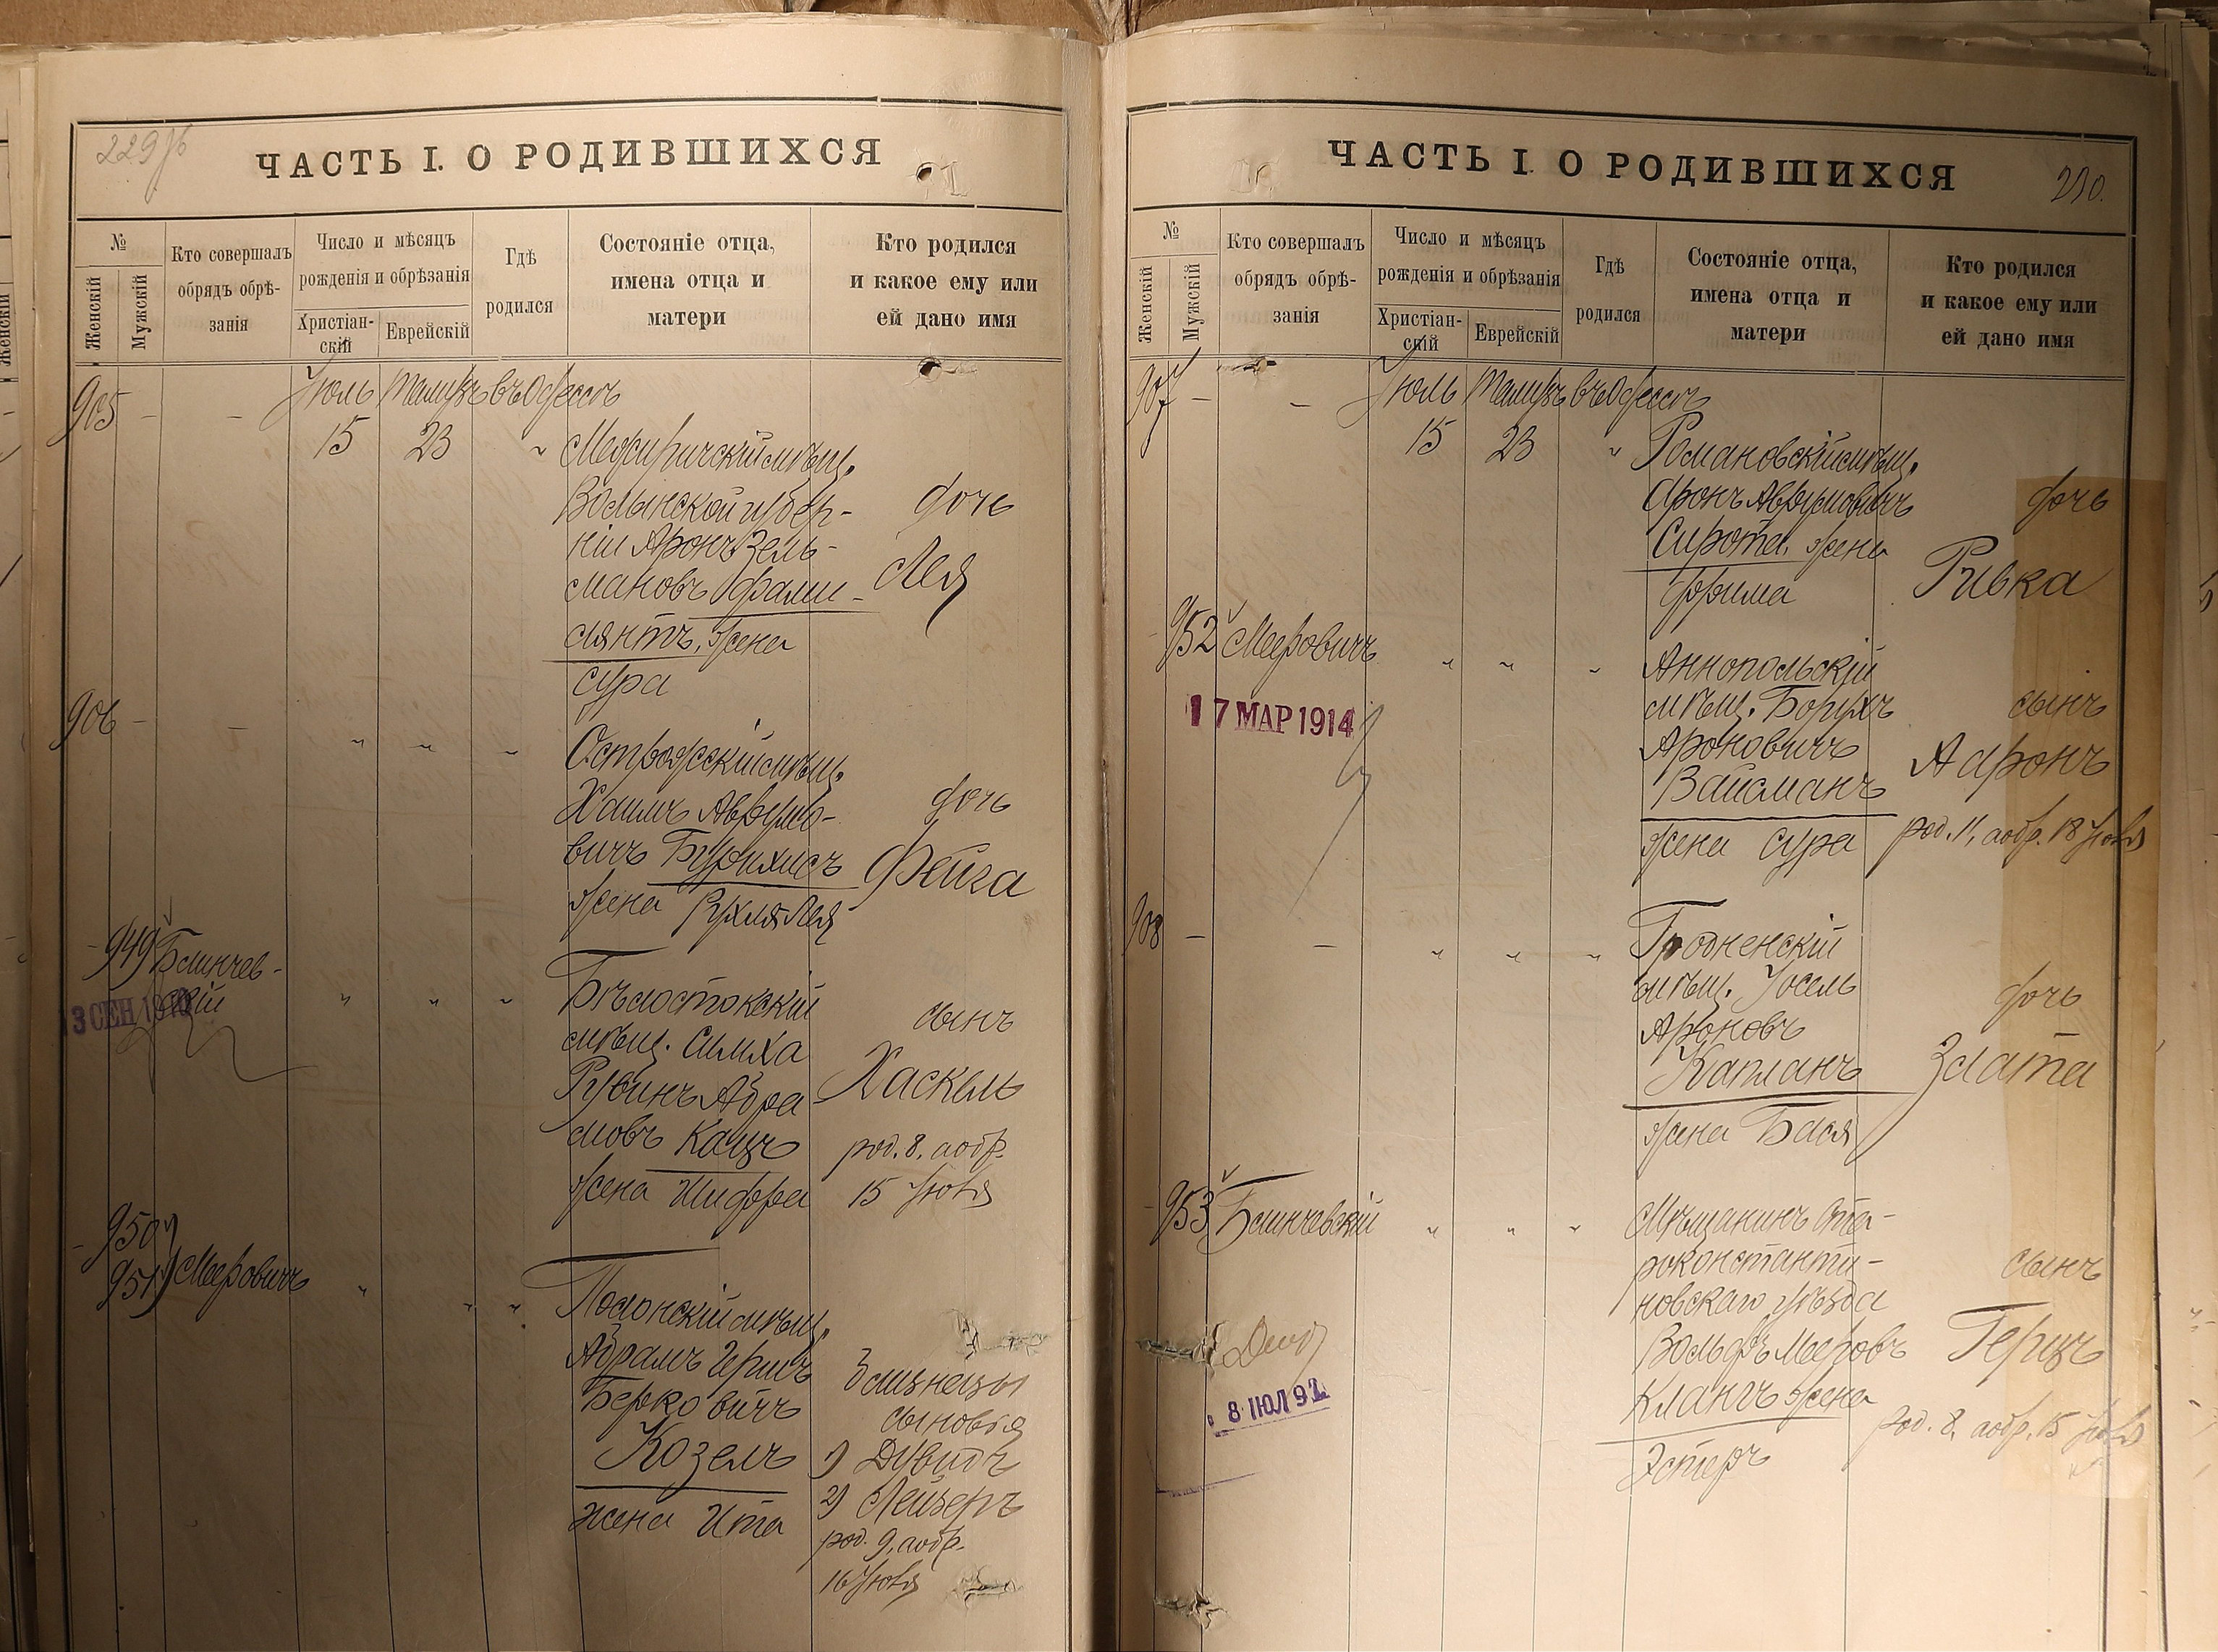 229 об
ЧАСТЬ I. О РОДИВШИХСЯ
№
Женскій
Мужскій
Кто совершалъ
обрядъ обрѣ-
занія
Число и мѣсяцъ
рожденія и обрѣзанія
Христіан-
скій
Еврейскій
Гдѣ
родился
Состояніе отца,
имена отца и
матери
Кто родился
и какое ему или
ей дано имя
905 - - Іюль Тамузъ въ Одессѣ
15 23 " Межиричскій мѣщ.
Волынской губер-
ніи Аронъ Зель-
мановъ Фами-
лянтъ, жена
Сура
дочь
Лея
906 - - " " " Острожскій мѣщ.
Хаимъ Аврумо-
вичъ Бурихисъ
жена Рухля Лея
дочь
Фейга
- 949 Блинчев-
скій
3 СЕН 19
" " " Бѣлостокскій
мѣщ. Симха
Рувинъ Абра-
мовъ Кацъ
жена Шифра
сынъ
Хаскель
род. 8, а обр.
15 Іюля
- 950
951 Мееровичъ " " " Полонскій мѣщ.
Абрамъ Гершъ
Берковичъ
Козелъ
жена Ита
Близнецы
сыновья
1) Дувидъ
2) Лейзеръ
род. 9, а обр.
16 Іюля
ЧАСТЬ I. О РОДИВШИХСЯ
230.
№
Женскій
Мужскій
Кто совершалъ
обрядъ обрѣ-
занія
Число и мѣсяцъ
рожденія и обрѣзанія
Христіан-
скій
Еврейскій
Гдѣ
родился
Состояніе отца,
имена отца и
матери
Кто родился
и какое ему или
ей дано имя
907 - - Іюль Тамузъ въ Одессѣ
15 23 " Романовскій мѣщ.
Аронъ Аврумовичъ
Сирота, жена
Фрима
дочь
Ривка
- 952 Мееровичъ " " " Аннопольскій
мѣщ. Борухъ
Ароновичъ
Вайсманъ
жена Сура
17 МАР 1914
сынъ
Ааронъ
род. 11, а обр. 18 Іюля
908 - - " " " Гродненскій
мѣщ. Іосель
Ароновъ
Капланъ
жена Бася
дочь
Злата
- 953 Блинчевскій " " " Мѣщанинъ Ста-
роконстанти-
новскаго уѣзда
Вольфъ Мееровъ
Клангъ жена
Эстеръ
8 ІЮЛ 91
сынъ
Герцъ
род. 8, а обр. 15 Іюля